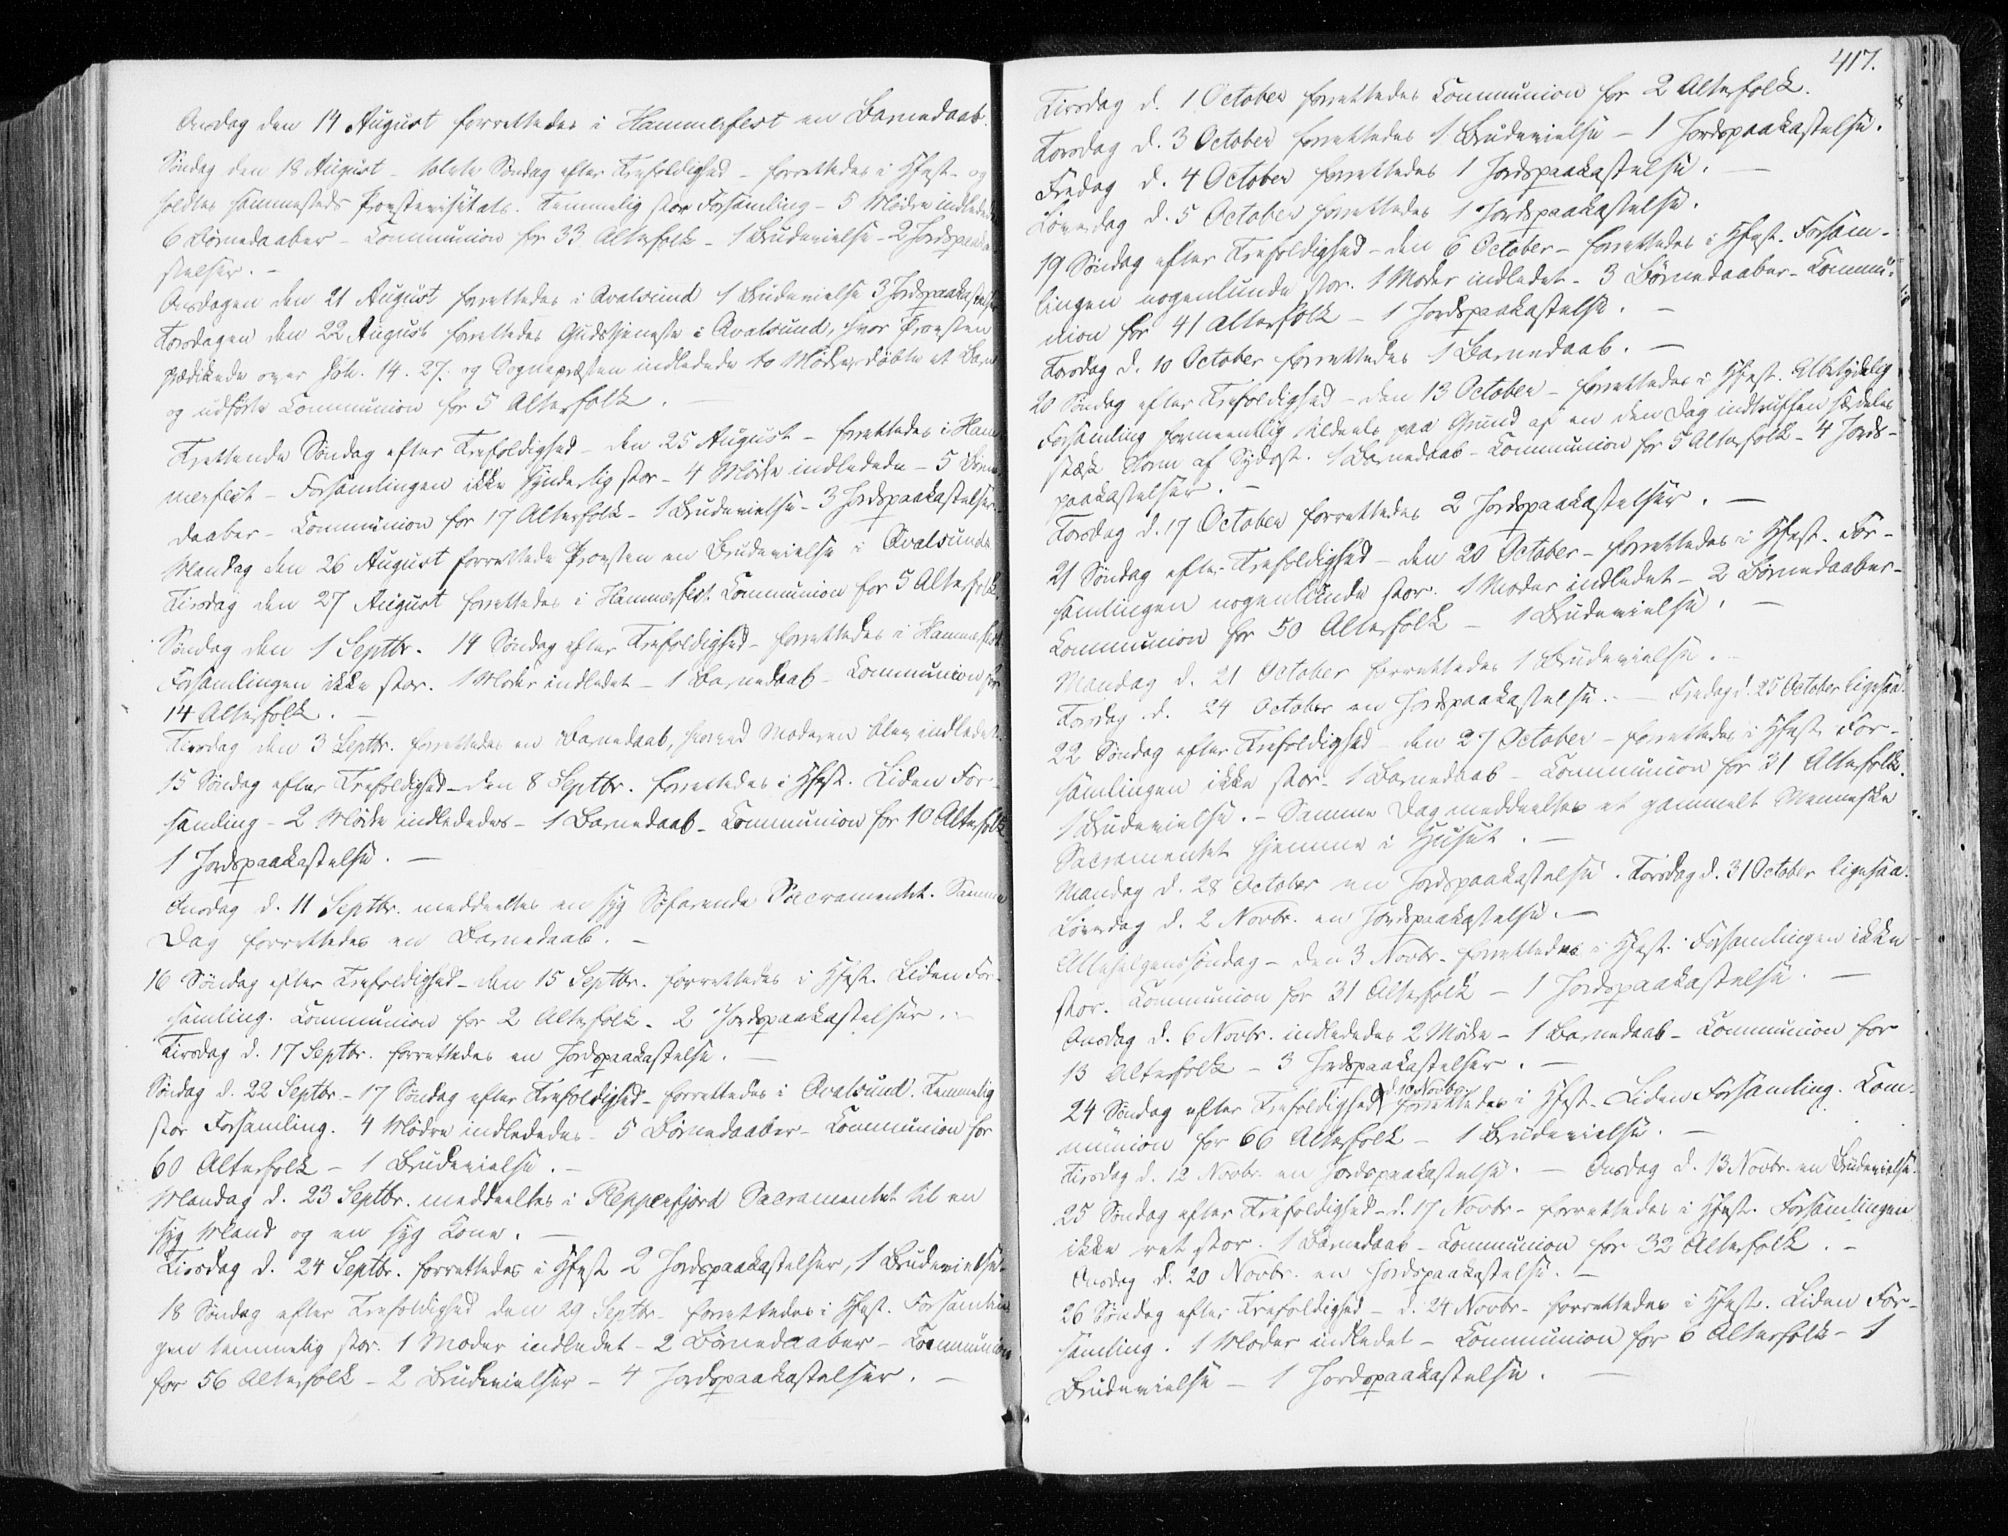 Onsdag den 14 August forrettedes i Hammerfest en Barnedaab.
Søndag den 18 August - tolvte Søndag efter Trefoldighed - forrettedes i Hfest - og
holdtes sammesteds Provstevisitats. Temmelig stor Forsamling - 5 Mødre indlededes
6 Børnedaaber - Communion for 33 Altersfolk - 1 Brudevielse - 2 Jordspaaka-
stelser. -
Onsdagen den 21 August forrettedes i Qvalsund 1 Brudevielse 3 Jordspaakastelser
Torsdagen den 22 August forrettedes Gudstjeneste i Qvalsund, hvor Provsten
prædikede over Joh. 14. 27. og Sognepræsten indledede to Mødre, døbte et Barn
og udførte Communion for 5 Altersfolk. -
Trettende Søndag efter Trefoldighed - den 25 August - forrettedes i Ham-
merfest - Forsamlingen ikke synderlig stor - 4 Mødre indledede - 5 Børne-
daaber - Communion for 17 Altersfolk - 1 Brudevielse - 3 Jordspaakastelser.
Mandag den 26 August forrettede Provsten en Brudevielse i Qvalsund.
Tirsdag den 27 August forrettedes i Hammerfest Communion for 5 Altersfolk.
Søndag den 1 Septbr. 14 Søndag efter Trefoldighed - forrettedes i Hammerfest
Forsamlingen ikke stor. 1 Moder indledet - 1 Barnedaab - Communion for
14 Altersfolk. -
Tirsdag den 3 Septbr. forrettedes en Barnedaab, hvorved Moderen blev indledet.
15 Søndag efter Trefoldighed - den 8 Septbr. forrettedes i Hfest. Liden For-
samling - 2 Mødre indlededes - 1 Barnedaab - Communion for 10 Altersfolk
1 Jordspaakastelse. -
Onsdag d. 11 Septbr. meddeeltes en syg Søfarende Sacramentet. Samme
Dag forrettedes en Barnedaab. -
16 Søndag efter Trefoldighed - den 15 Septbr. forrettedes i Hfest. Liden For-
samling. Communion for 2 Altersfolk - 2 Jordspaakastelser. -
Tirsdag d. 17 Septbr. forrettedes en Jordspaakastelse. -
Søndag d. 22 Septbr. - 17 Søndag efter Trefoldighed - forrettedes i Qvalsund. Temmelig
stor Forsamling. 4 Mødre indlededes - 5 Børnedaaber - Communion for
60 Altersfolk - 1 Brudevielse. -
Mandag d. 23 Septbr. meddeeltes i Reppenfjord Sacramentet til en
syg Mand og en syg Kone. -
Tirsdag d. 24 Septbr. forrettedes i Hfest 2 Jordspaakastelser, 1 Brudevielse.
18 Søndag efter Trefoldighed den 29 Septbr. forrettedes i Hfest. Forsamlin-
gen temmelig stor. 1 Moder indledet - 2 Børnedaaber - Communion
for 56 Altersfolk - 2 Brudevielser - 4 Jordspaakastelser. -
417.
Tirsdag d. 1 October forrettedes Communion for 2 Altersfolk.
Torsdag d. 3 October forrettedes 1 Brudevielse - 1 Jordspaakastelse.
Fredag d. 4 October forrettedes 1 Jordspaakastelse. -
Løverdag d. 5 October forrettedes 1 Jordspaakastelse.
19 Søndag efter Trefoldighed - den 6 October - forrettedes i Hfest. Forsam-
lingen nogenlunde stor. 1 Moder indledet - 3 Børnedaaber - Commu-
nion for 41 Altersfolk - 1 Jordspaakastelse. -
Torsdag d. 10 October forrettedes 1 Barnedaab. -
20 Søndag efter Trefoldighed - den 13 October - forrettedes i Hfest. Ubetydelig
Forsamling formeentlig tildeels paa Grund af en den Dag indtruffen særdeles
stærk Storm af Sydost. 1 Barnedaab - Communion for 5 Altersfolk - 4 Jords-
paakastelser. -
Torsdag d. 17 October forrettedes 2 Jordspaakastelser. -
21 Søndag efter Trefoldighed - den 20 October - forrettedes i Hfest. For-
samlingen nogenlunde stor. 1 Moder indledet - 2 Børnedaaber -
Communion for 50 Altersfolk - 1 Brudevielse. -
Mandag d. 21 October forrettedes 1 Brudevielse. -
Torsdag d. 24 October en Jordspaakastelse. - Fredag d. 25 October ligesaa.
22 Søndag efter Trefoldighed - den 27 October - forrettedes i Hfest. For-
samlingen ikke stor - 1 Barnedaab - Communion for 31 Altersfolk.
1 Brudevielse. - Samme Dag meddeeltes et gammelt Menneske
Sacramentet hjemme i Huset. -
Mandag d. 28 October en Jordspaakastelse. Torsdag d. 31 October ligesaa.
Løverdag d. 2 Novbr. en Jordspaakastelse. -
Allehelgenssøndag - den 3 Novbr. forrettedes i Hfest. Forsamlingen ikke
stor. Communion for 31 Altersfolk - 1 Jordspaakastelse. -
Onsdag d. 6 Novbr. indlededes 2 Mødre - 1 Barnedaab - Communion for
13 Altersfolk - 3 Jordspaakastelser. -
d. 10 Novbr.
24 Søndag efter Trefoldighed forrettedes i Hfest. Liden Forsamling. Com-
munion for 66 Altersfolk - 1 Brudevielse. -
Tirsdag d. 12 Novbr. en Jordspaakastelse. - Onsdag d. 13 Novbr. en Brudevielse.
25 Søndag efter Trefoldighed - d. 17 Novbr - forrettedes i Hfest. Forsamlingen
ikke ret stor. 1 Barnedaab - Communion for 32 Altersfolk. -
Onsdag d. 20 Novbr. en Jordspaakastelse. -
26 Søndag efter Trefoldighed - d. 24 Novbr - forrettedes i Hfest. Liden For-
samling. 1 Moder indledet - Communion for 6 Altersfolk - 1
Brudevielse - 1 Jordspaakastelse. -